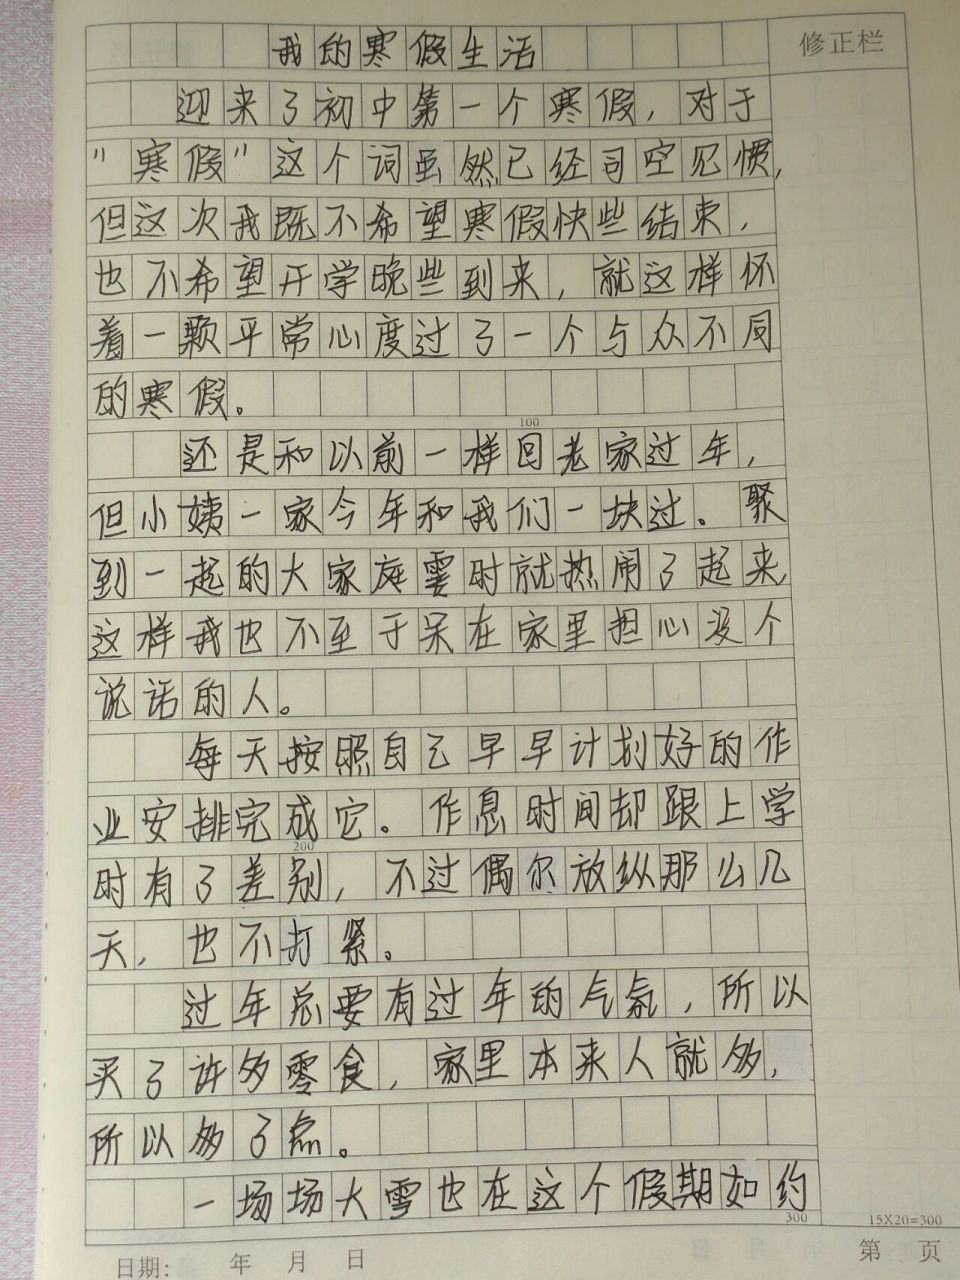 我的寒假生活
修正栏
迎来了初中第一个寒假，对于
"寒假"这个词虽然已经司空见惯，
但这次我既不希望寒假快些结束，
也不希望开学晚些到来，就这样怀
着一颗平常心度过了一个与众不同
的寒假。
100
还是和以前一样回老家过年，
但小姨一家今年和我们一块过。聚
到一起的大家庭霎时就热闹了起来，
这样我也不至于呆在家里担心没个
说话的人。
每天按照自己早早计划好的作
业安排完成它。作息时间却跟上学
200
时有了差别，不过偶尔放纵那么几
天，也不打紧。
过年总要有过年的气氛，所以
买了许多零食，家里本来人就多，
所以多了点。
一场场大雪也在这个假期如约
300
15X20=300
日期： 年 月 日
第 页